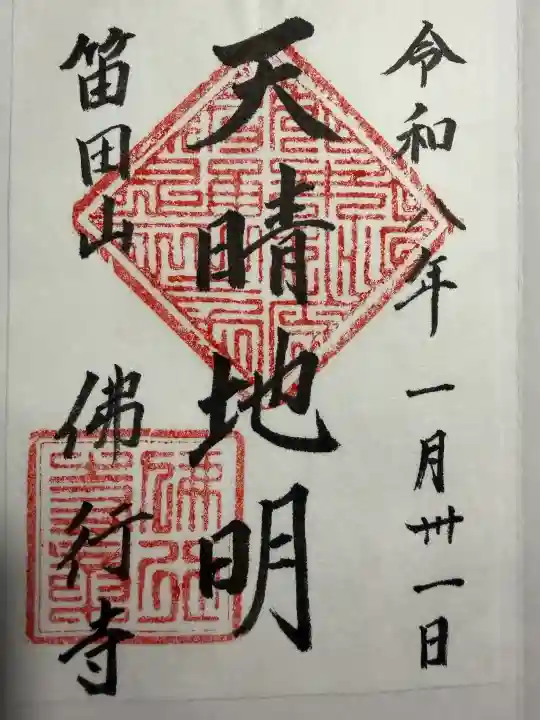 令和八年一月丗一日
天晴地明
笛田山
佛行寺